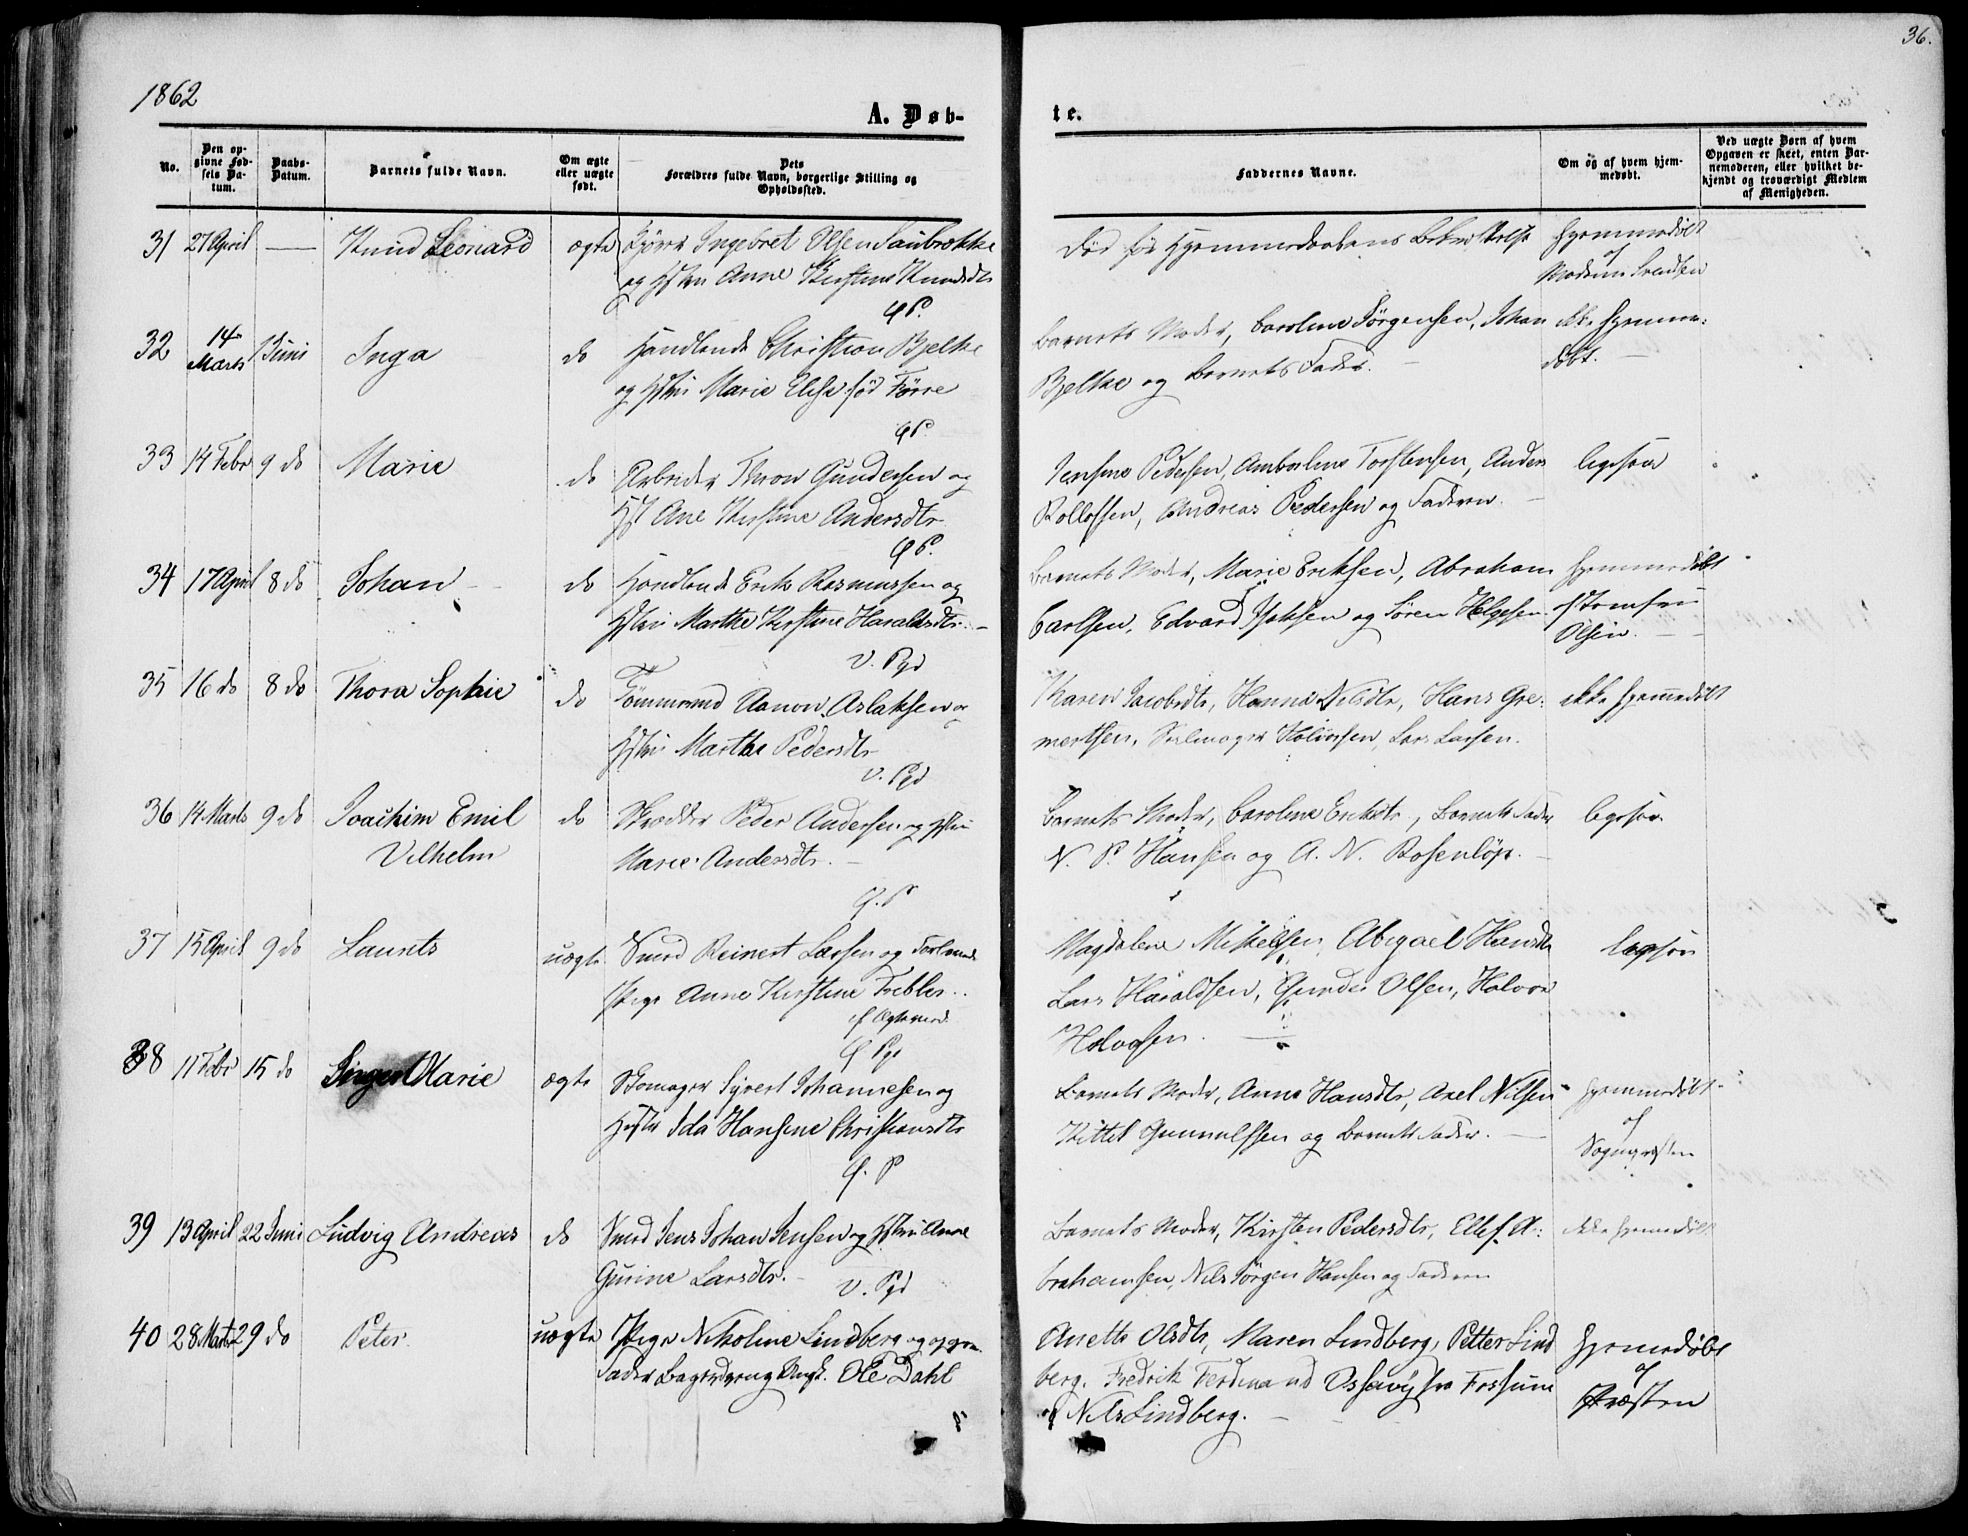 1862
36.
A. Døb-
te.
No.
Den op-
givne Fød-
sels Da-
tum.
Daabs-
Datum.
Barnets fulde Navn.
Om ægte
eller uægte
født.
Dets
Forældres fulde Navn, borgerlige Stilling og
Opholdssted.
Faddernes Navne.
Om og af hvem hjem-
medøbt.
Ved uægte Børn af hvem
Opgaven er skeet, enten Bar-
nemoderen, eller hvilket be-
kjendt og troværdigt Medlem
af Menigheden.
31 27 April — Knud Leonard ægte Ingebret Olsen
og Anne Kirstine Knudsdtr
Død før Hjemmedaabens
hjemmedøbt
af
Madam Svendsen
G P.
32 14 Marts 1 Juni Inga do Handlende Christian Bjelke
og Marie Elise fød Førre
Barnets Moder, Caroline Jørgensen, Johan
Bjelke og Barnets Fader. —
ikke hjemme-
døbt. —
G P.
33 14 Febr 9 do Marie do Arbeider Gundersen og
Ane Kirstine Andersdtr
Jensine Pedersen, Torstensen, Anders
Rollofsen, Andreas Pedersen og Faderen. —
ligesaa
G P.
34 17 April 8 do Johan — do Handlende Erik Rasmussen og
Marthe Kirstine Haraldsdtr. —
Barnets Moder, Marie Eriksen, Abraham
Carlsen, Edvard Isaksen og Søren Helgesen
hjemmedøbt
af Jomfru
Olsen. —
V. Pgd
35 16 do 8 do Thora Sophie do Tømmermand Aanon Aslaksen og
Marthe Pedersdtr
Karen Jacobsdtr, Hanna Nilsdtr, Hans Gre-
mertsen, Seilmager Halvorsen, Lars Larsen.
ikke hjemmedøbt
V. Pgd
36 14 Marts 9 do Joachim Emil
Vilhelm
do Skrædder Peder Andersen og
Marie Andersdtr. —
Barnets Moder, Caroline Eriksdtr, Barnets Fader
N. P. Hansen og A. N. Rosenløv. —
ligesaa
G. P
37 15 April 9 do Laurits uægte Smed Reinert Larsen og
Pige Anne Kirstine
Magdalene Mikelsen, Abigael Hansdtr
Lars Haraldsen, Gunder Olsen, Halvor
Halvorsen. —
ligesaa
G Pgd
38 11 Febr 15 do Marie ægte Skomager Syvert Johannesen og
Ida Hansine Christiansdtr
Barnets Moder, Anne Hansdtr, Axel Nilsen
Kittel Gunnulfsen og Barnets Fader. —
hjemmedøbt
af
Sognepræsten
G. P
39 13 April 22 Juni Ludvig Andreas do Smed Jens Johan Jensen og Anne
Gurine Larsdtr. —
Barnets Moder, Kirsten Pedersdtr, Ellef A-
brahamsen, Nils Jørgen Hansen og Faderen
ikke hjemmedøbt
V. Pgd
40 28 Marts 29 do Peter uægte Pige Nikoline Lindberg og opgiven
Fader Bagerdreng Ungk. Ole Dahl
Anette Olsdtr, Maren Lindberg, Petter Lind
berg, Fredrik Ferdinand Fossum
og Nils Lindberg. —
hjemmedøbt
af
Præsten